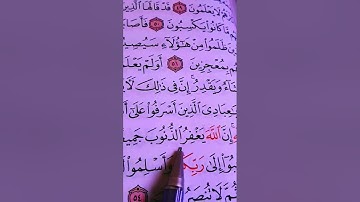 هُمْ لَا يَعْلَمُونَ ٤٩ قَدْ قَالَهَا الَّذِينَ
مَّا كَانُوا يَكْسِبُونَ ٥٠ فَأَصَا
ينَ ظَلَمُوا مِنْ هَٰؤُلَاءِ سَيُصِيبُ
بِمُعْجِزِينَ ٥١ أَوَلَمْ يَعْلَ
شَاءُ وَيَقْدِرُ إِنَّ فِي ذَٰلِكَ لَآ
يَٰعِبَادِيَ الَّذِينَ أَسْرَفُوا عَلَىٰ أَ
إِنَّ اللَّهَ يَغْفِرُ الذُّنُوبَ جَمِي
يبُوا إِلَىٰ رَبِّكُ وَأَسْلِمُوا
ثُمَّ لَا تُنصَرُ ٥٤